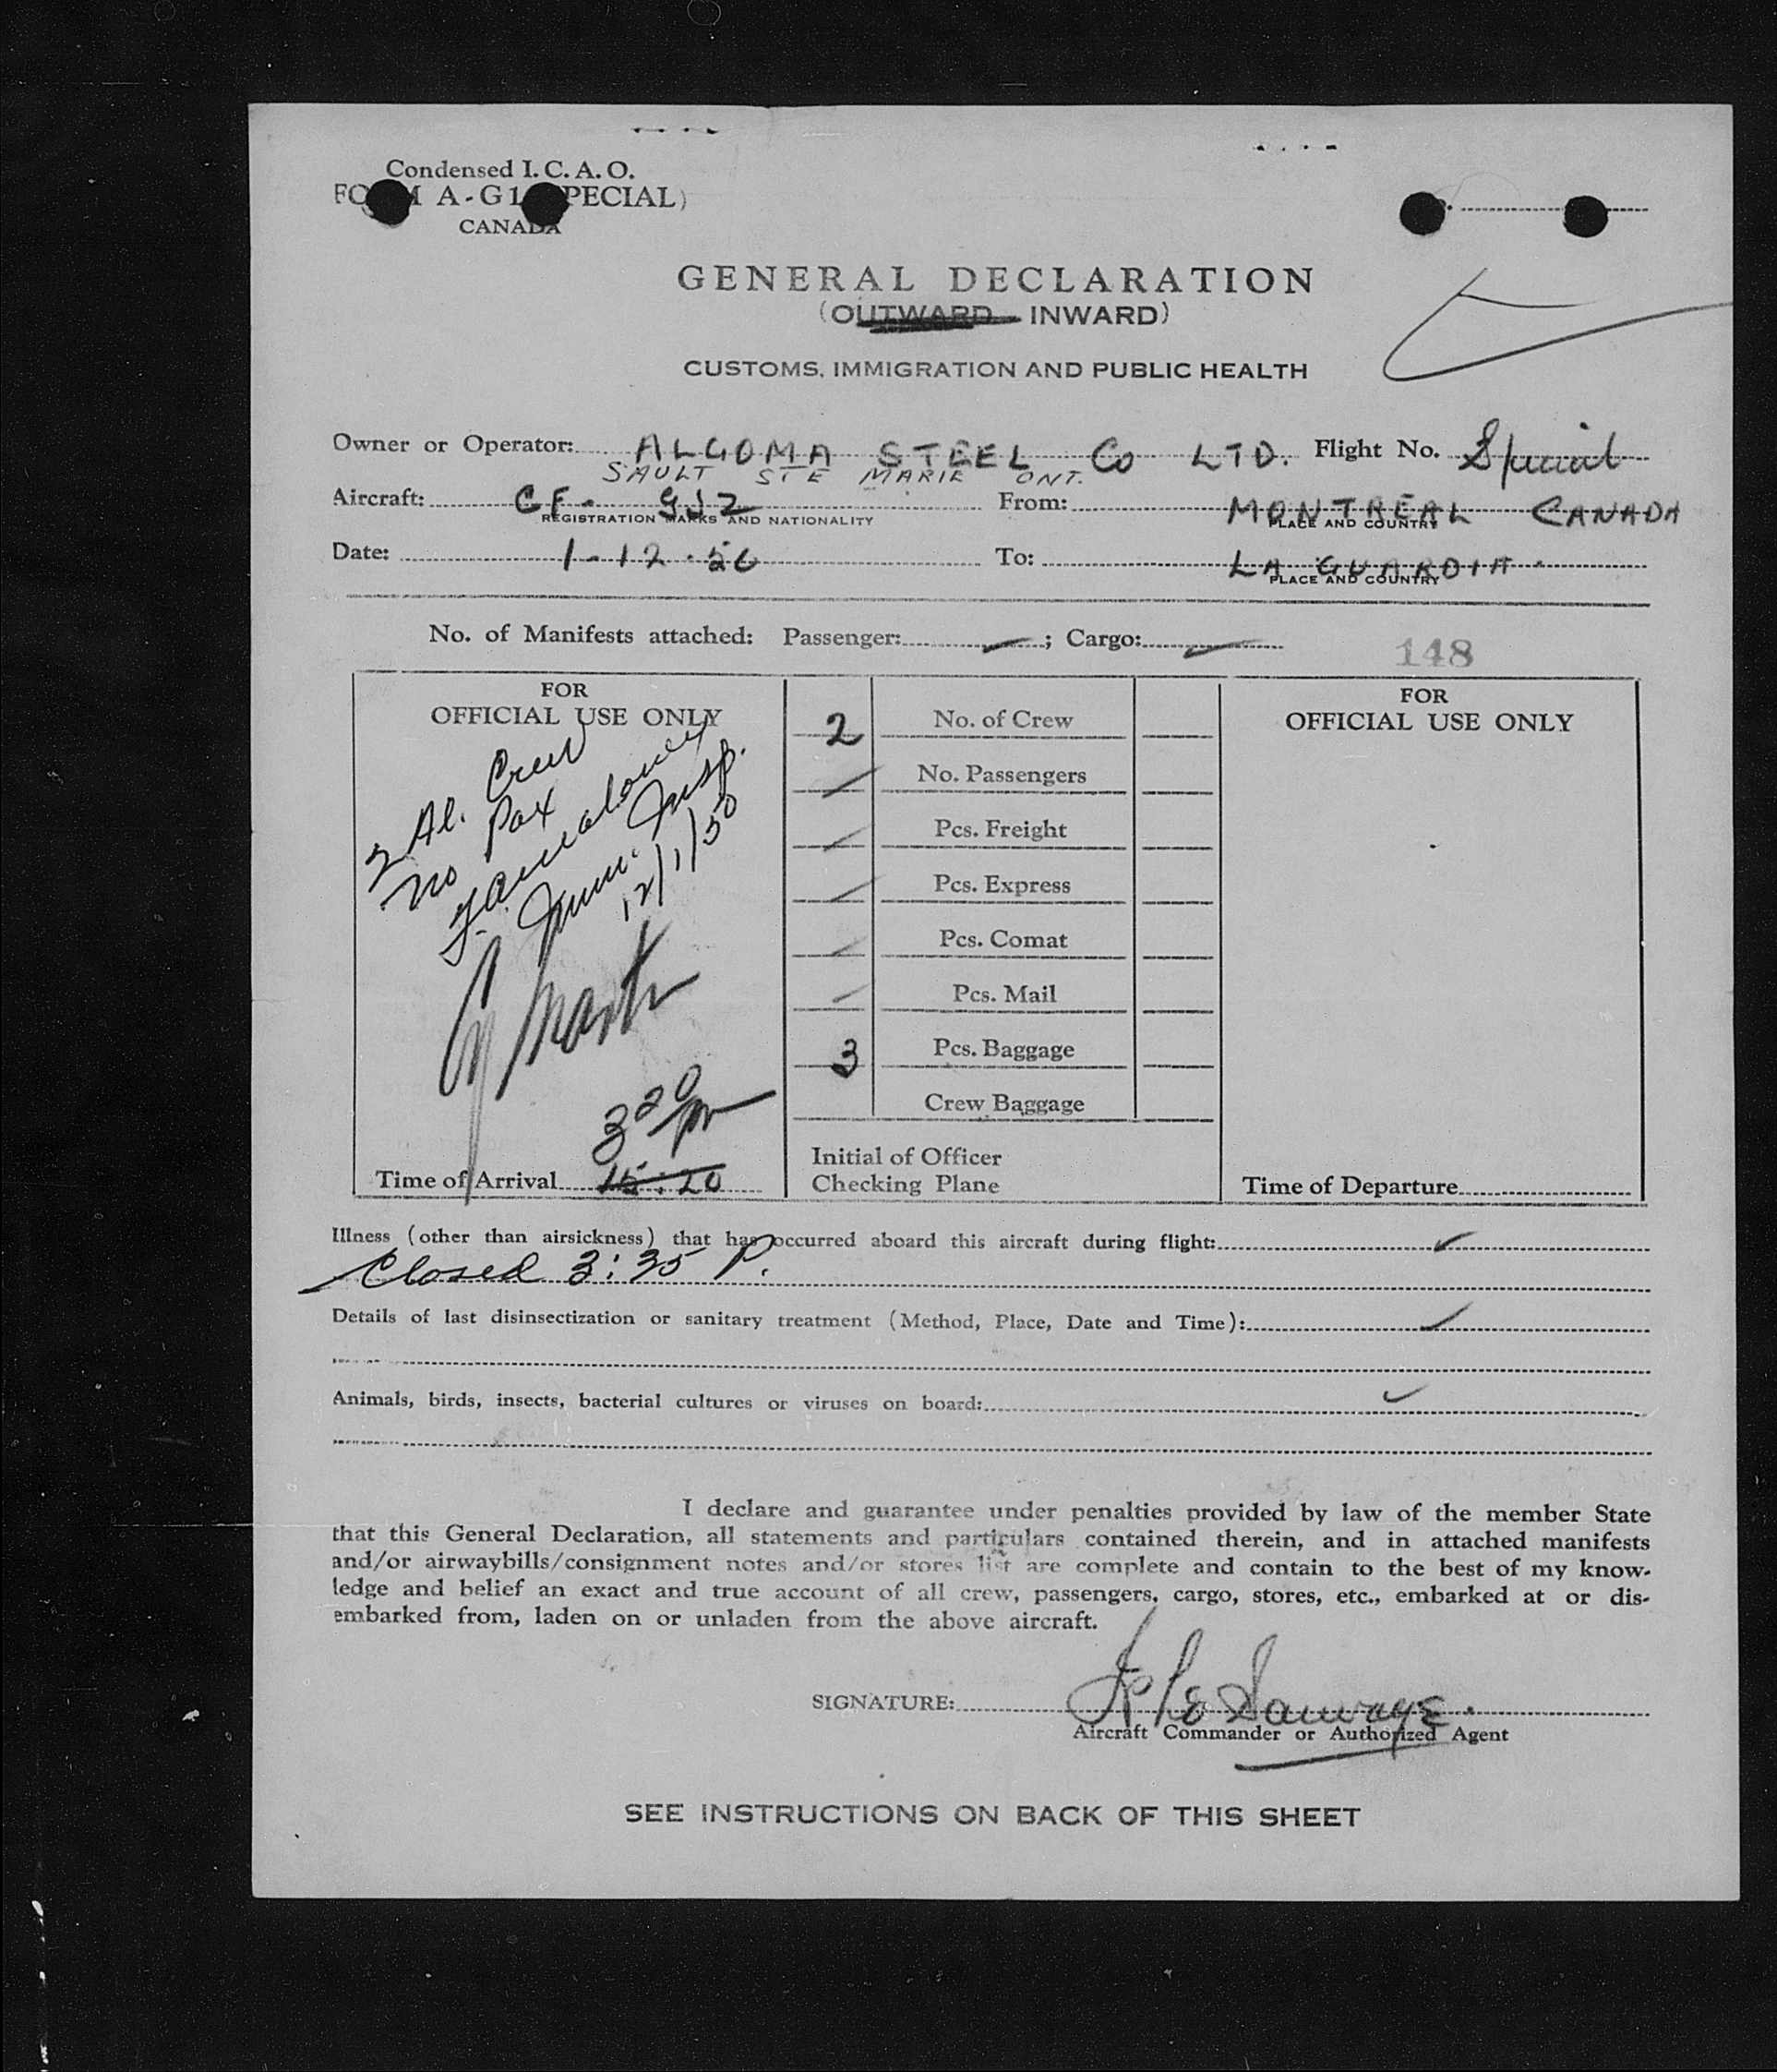 Condensed I. C. A. O.
FORM A-G1 (SPECIAL)
CANADA
GENERAL DECLARATION
(OUTWARD INWARD)
CUSTOMS, IMMIGRATION AND PUBLIC HEALTH
Owner or Operator: ALGOMA STEEL Co LTD. Flight No. Special
SAULT STE MARIE ONT.
Aircraft: CF- GJZ From: MONTREAL CANADA
REGISTRATION MARKS AND NATIONALITY PLACE AND COUNTRY
Date: 1-12-50 To: LA GUARDIA.
PLACE AND COUNTRY
No. of Manifests attached: Passenger: ; Cargo:
148
FOR
OFFICIAL USE ONLY
2 Al. Crew
No Pax
Imm. Insp.
12/1/50
3 20 pm
Time of Arrival 15:20
2 No. of Crew
No. Passengers
Pcs. Freight
Pcs. Express
Pcs. Comat
Pcs. Mail
3 Pcs. Baggage
Crew Baggage
Initial of Officer
Checking Plane
FOR
OFFICIAL USE ONLY
Time of Departure
Illness (other than airsickness) that has occurred aboard this aircraft during flight:
Closed 3:35 P.
Details of last disinsectization or sanitary treatment (Method, Place, Date and Time):
Animals, birds, insects, bacterial cultures or viruses on board:
I declare and guarantee under penalties provided by law of the member State
that this General Declaration, all statements and particulars contained therein, and in attached manifests
and/or airwaybills/consignment notes and/or stores list are complete and contain to the best of my know-
ledge and belief an exact and true account of all crew, passengers, cargo, stores, etc., embarked at or dis-
embarked from, laden on or unladen from the above aircraft.
SIGNATURE: Le Sauvage.
Aircraft Commander or Authorized Agent
SEE INSTRUCTIONS ON BACK OF THIS SHEET